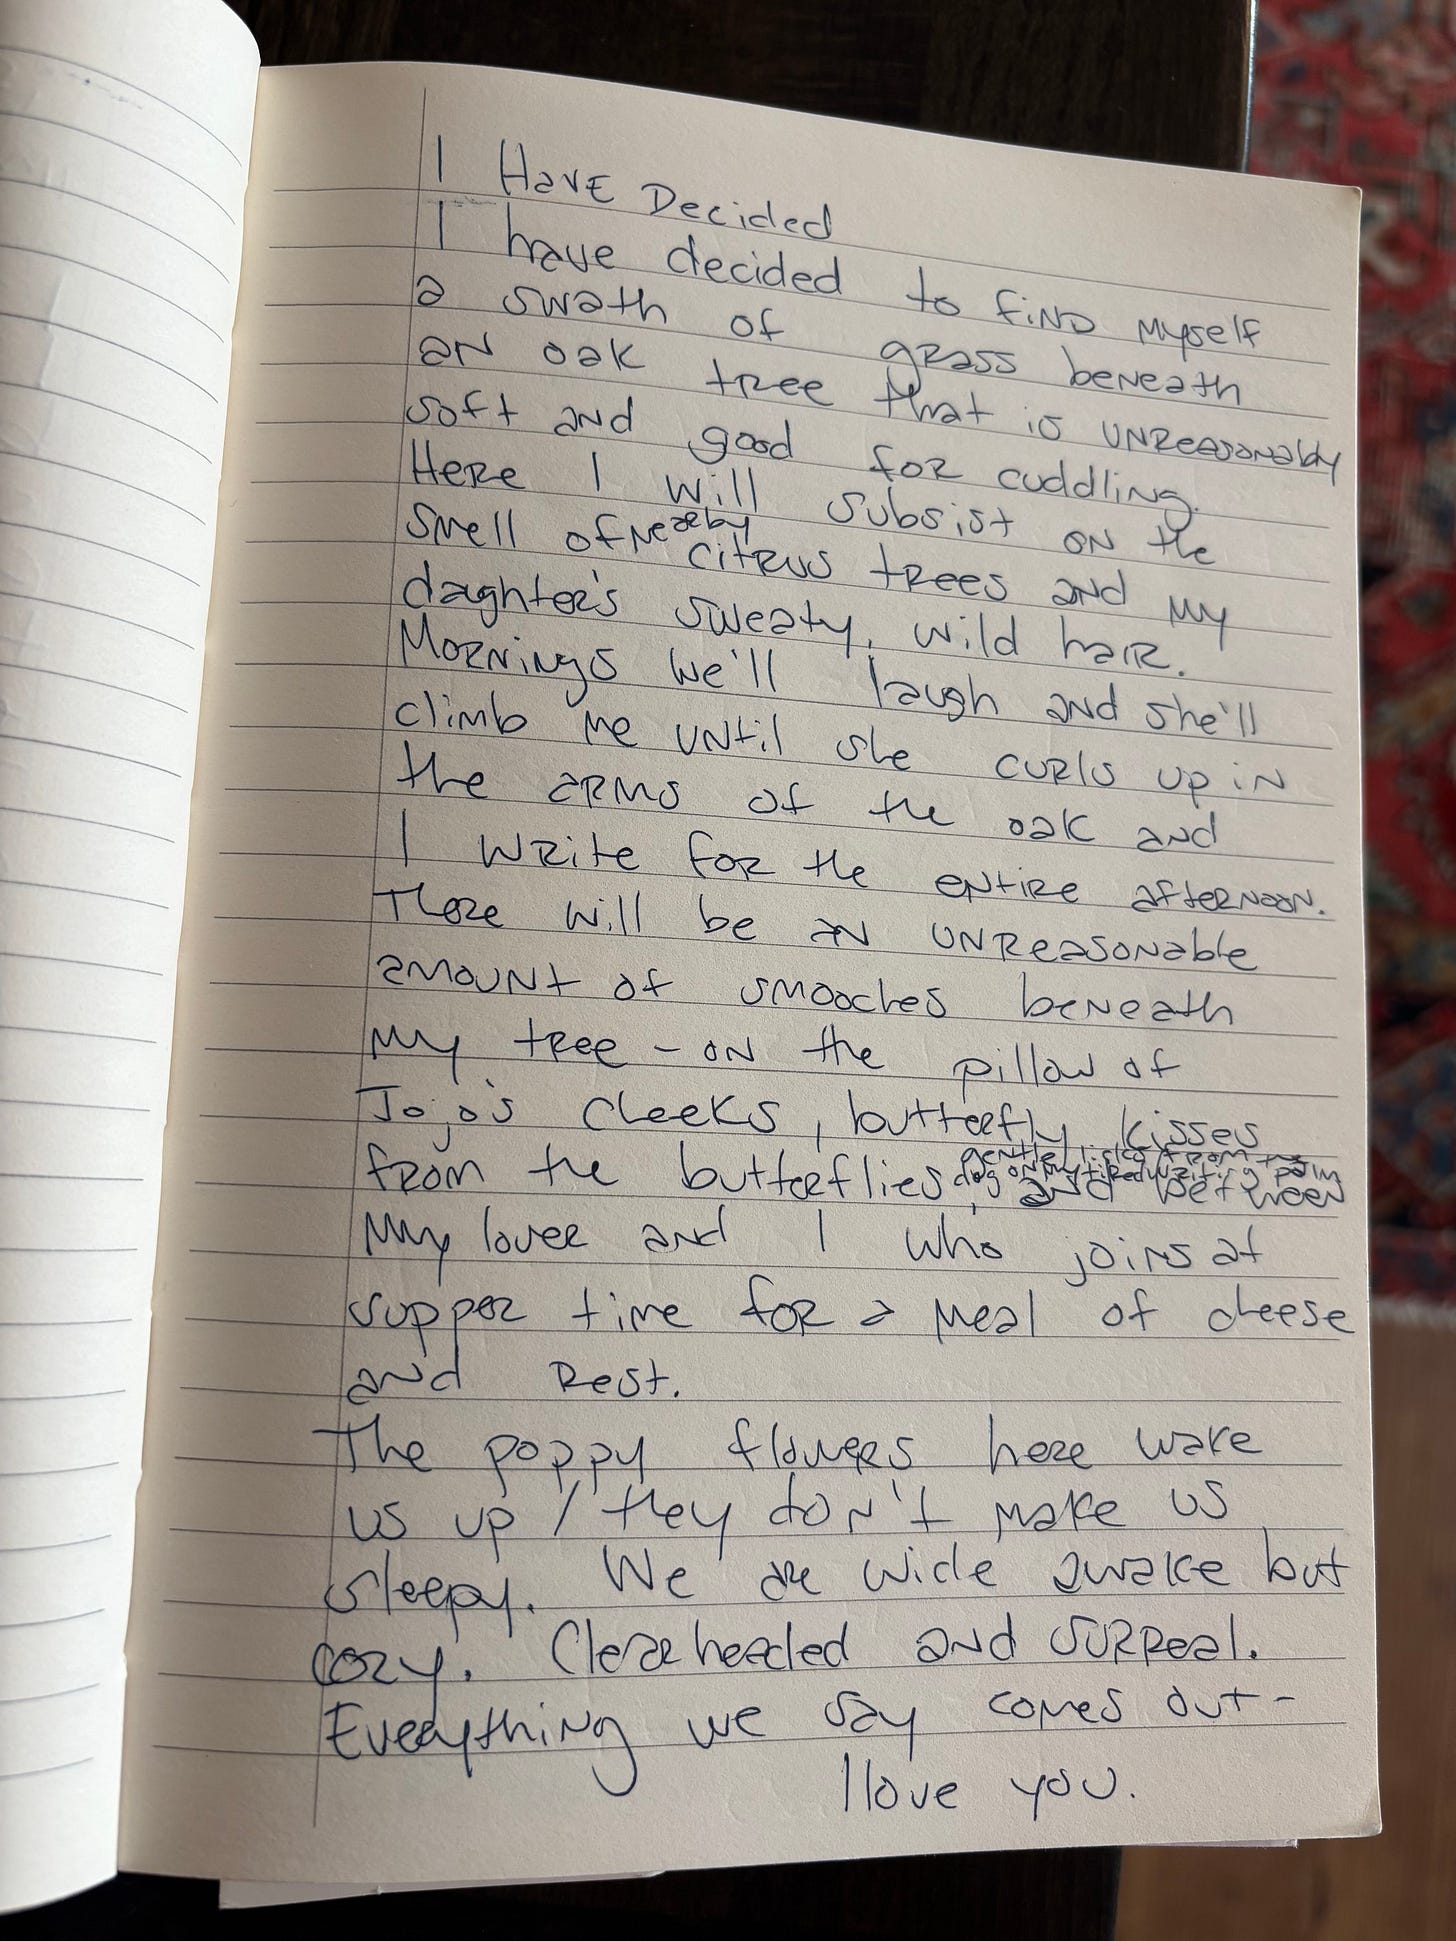 I HAVE Decided
I have decided to find myself
a swath of grass beneath
an oak tree that is unreasonably
soft and good for cuddling.
Here I will subsist on the
smell of nearby citrus trees and my
daghter's sweaty, wild hair.
Mornings we'll laugh and she'll
climb me until she curls up in
the arms of the oak and
I write for the entire afternoon.
There will be an unreasonable
amount of smooches beneath
my tree - on the pillow of
Jojo's cheeks, butterfly kisses
gentle licks from the
from the butterflies, dog on my tired writing palm and between
my lover and I who joins at
supper time for a meal of cheese
and rest.
The poppy flowers here wake
us up / they don't make us
sleepy. We are wide awake but
cozy. Clearheaded and surreal.
Everything we say comes out -
I love you.